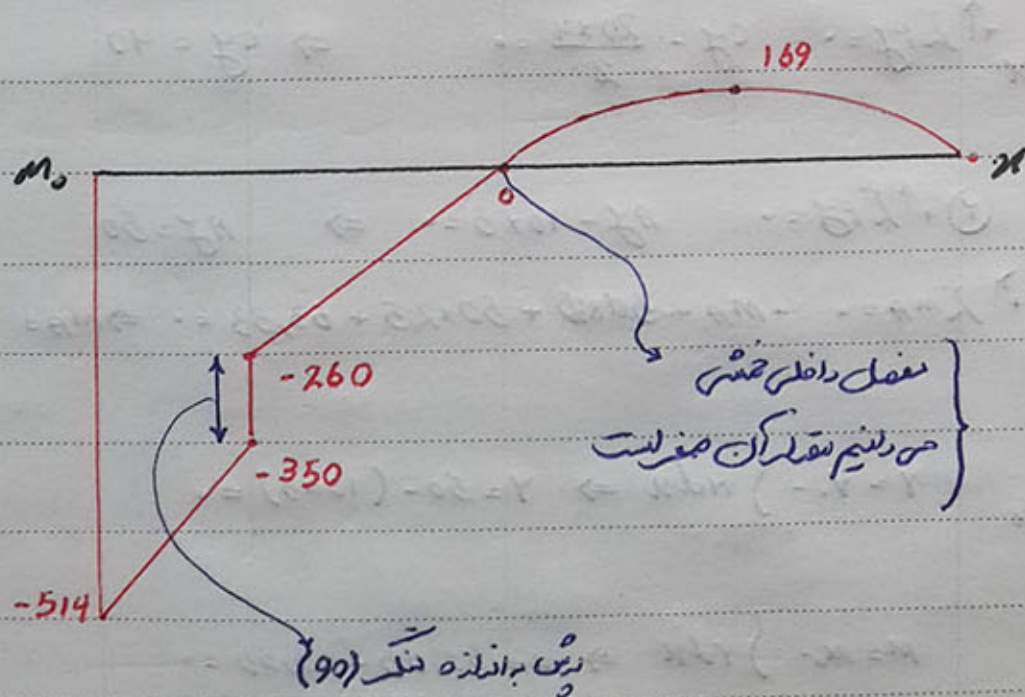 169
M₀
x
0
-260
-350
-514
مفصل داخلی خمشی
می دانیم مقدار آن صفر است
پرش به اندازه لنگر (90)